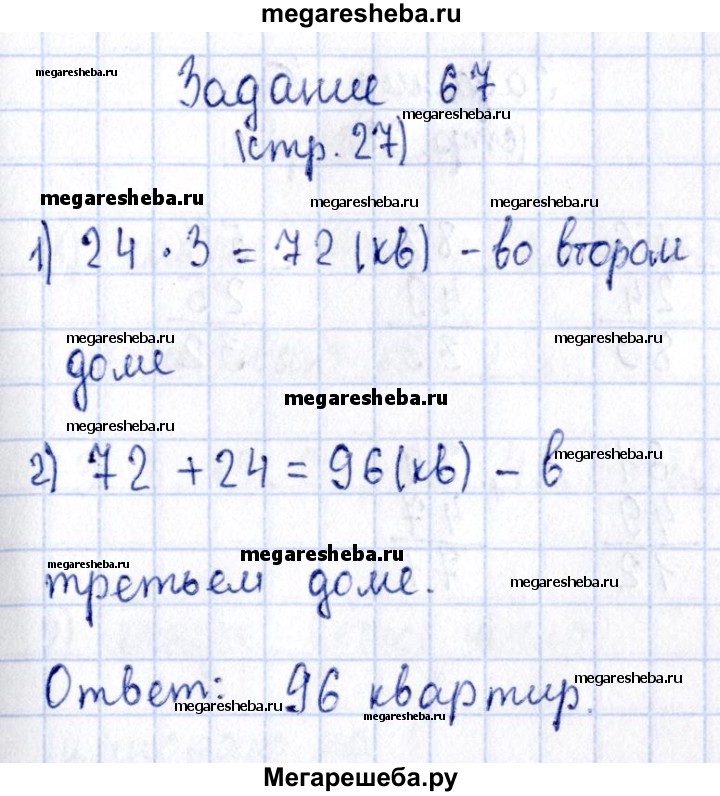 megaresheba.ru
megaresheba.ru
Задание 67
megaresheba.ru
(стр. 27)
megaresheba.ru
megaresheba.ru
megaresheba.ru
1) 24 · 3 = 72 (кв) - во втором
megaresheba.ru
megaresheba.ru
доме
megaresheba.ru
megaresheba.ru
2) 72 + 24 = 96 (кв) - в
megaresheba.ru
megaresheba.ru
megaresheba.ru
третьем доме.
megaresheba.ru
Ответ: 96 квартир.
megaresheba.ru
megaresheba.ru
megaresheba.ru
Мегарешеба.ру